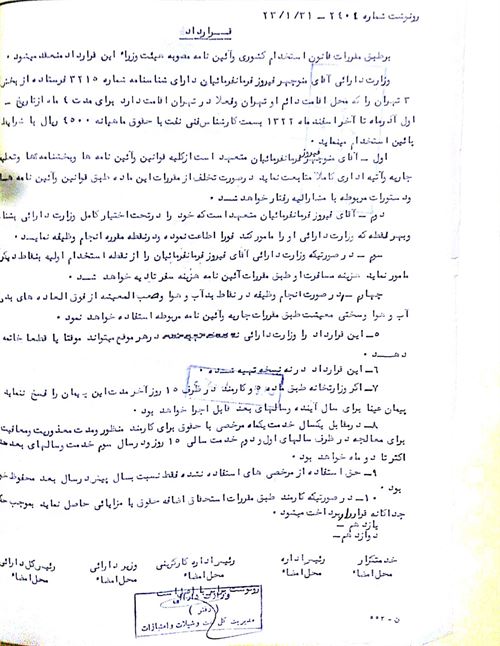 رونوشت شماره ۲۴۰۴ – ۲۳/۱/۳۱
قرارداد
برطبق مقررات قانون استخدام کشوری وآئین نامه مصوبه هیئت وزراء این قرارداد منعقد میشود .
وزارت دارائی آقای منوچهر فیروز فرمانفرمائیان دارای شناسنامه شماره ۳۲۱۵ فرستاده از بخش
۳ تهران را که محل اقامت دائم او تهران وفعلا در تهران اقامت دارد برای مدت ۴ ماه از تاریخ –
اول آذرماه تا آخر اسفند ماه ۱۳۲۲ بسمت کارشناس فنی نفت با حقوق ماهیانه ۴۵۰۰ ریال با شرایط
پائین استخدام مینماید .
اول – آقای منوچهر فیروز فرمانفرمائیان متعهد است از کلیه قوانین وآئین نامه ها وبخشنامه ها
جاریه وآتیه اداری کاملا متابعت نماید درصورت تخلف از مقررات این ماده طبق قوانین وآئین نامه
ودستورات مربوطه با مشارالیه رفتار خواهد شد .
دوم – آقای فیروز فرمانفرمائیان متعهد است که خود را درتحت اختیار کامل وزارت دارائی
وبهر نقطه که وزارت دارائی او را مامور کند فورا اطاعت نموده ودرنقطه مقرره انجام وظیفه نماید .
سوم – در صورتیکه وزارت دارائی آقای فیروز فرمانفرمائیان را از نقطه استخدام اولیه بنقاط دیگر
مامور نماید هزینه مسافرت او طبق مقررات آئین نامه هزینه سفر تادیه خواهد شد .
چهارم – در صورت انجام وظیفه در نقاط بدآب و هوا وصعب المعیشه از فوق العاده های بدی
آب و هوا وسختی معیشت طبق مقررات جاریه وآئین نامه مربوطه استفاده خواهد نمود .
۵ – این قرارداد را وزارت دارائی درهر موقع میتواند موقتا یا قطعا خاتمه
دهد .
۶ – این قرارداد در نه نسخه تهیه شده .
۷ – اگر وزارتخانه طبق ماده ۵ و کارمند در ظرف ۱۵ روز آخر مدت این پیمان را فسخ ننماید
پیمان عینا برای سال آینده وسالهای بعد قابل اجرا خواهد بود .
۸ – در مقابل یکسال خدمت یکماه مرخصی با حقوق برای کارمند منظور ومدت معذوریت ومعافیت
برای معالجه در ظرف سالهای اول ودوم خدمت سالی ۱۵ روز ودرسال سوم خدمت وسالهای بعد
اکثر تا دو ماه خواهد بود .
۹ – حق استفاده از مرخصی های استفاده نشده فقط نسبت بسال پیش درسال بعد محفوظ
بود .
۱۰ – در صورتیکه کارمند طبق مقررات استحقاق اضافه حقوق یا مزایائی حاصل نماید بموجب
جداگانه قرارداد پرداخت میشود .
یازدهم –
دوازدهم –
خدمتگزار رئیس اداره رئیس اداره کارگزینی وزیر دارائی رئیس کل دارائی
محل امضاء محل امضاء محل امضاء محل امضاء محل امضاء
رونوشت برابر با اصل است
وزارت دارائی
( دفتر )
مدیریت کل نفت وشیلات وامتیازات
ن – ۰۰۲